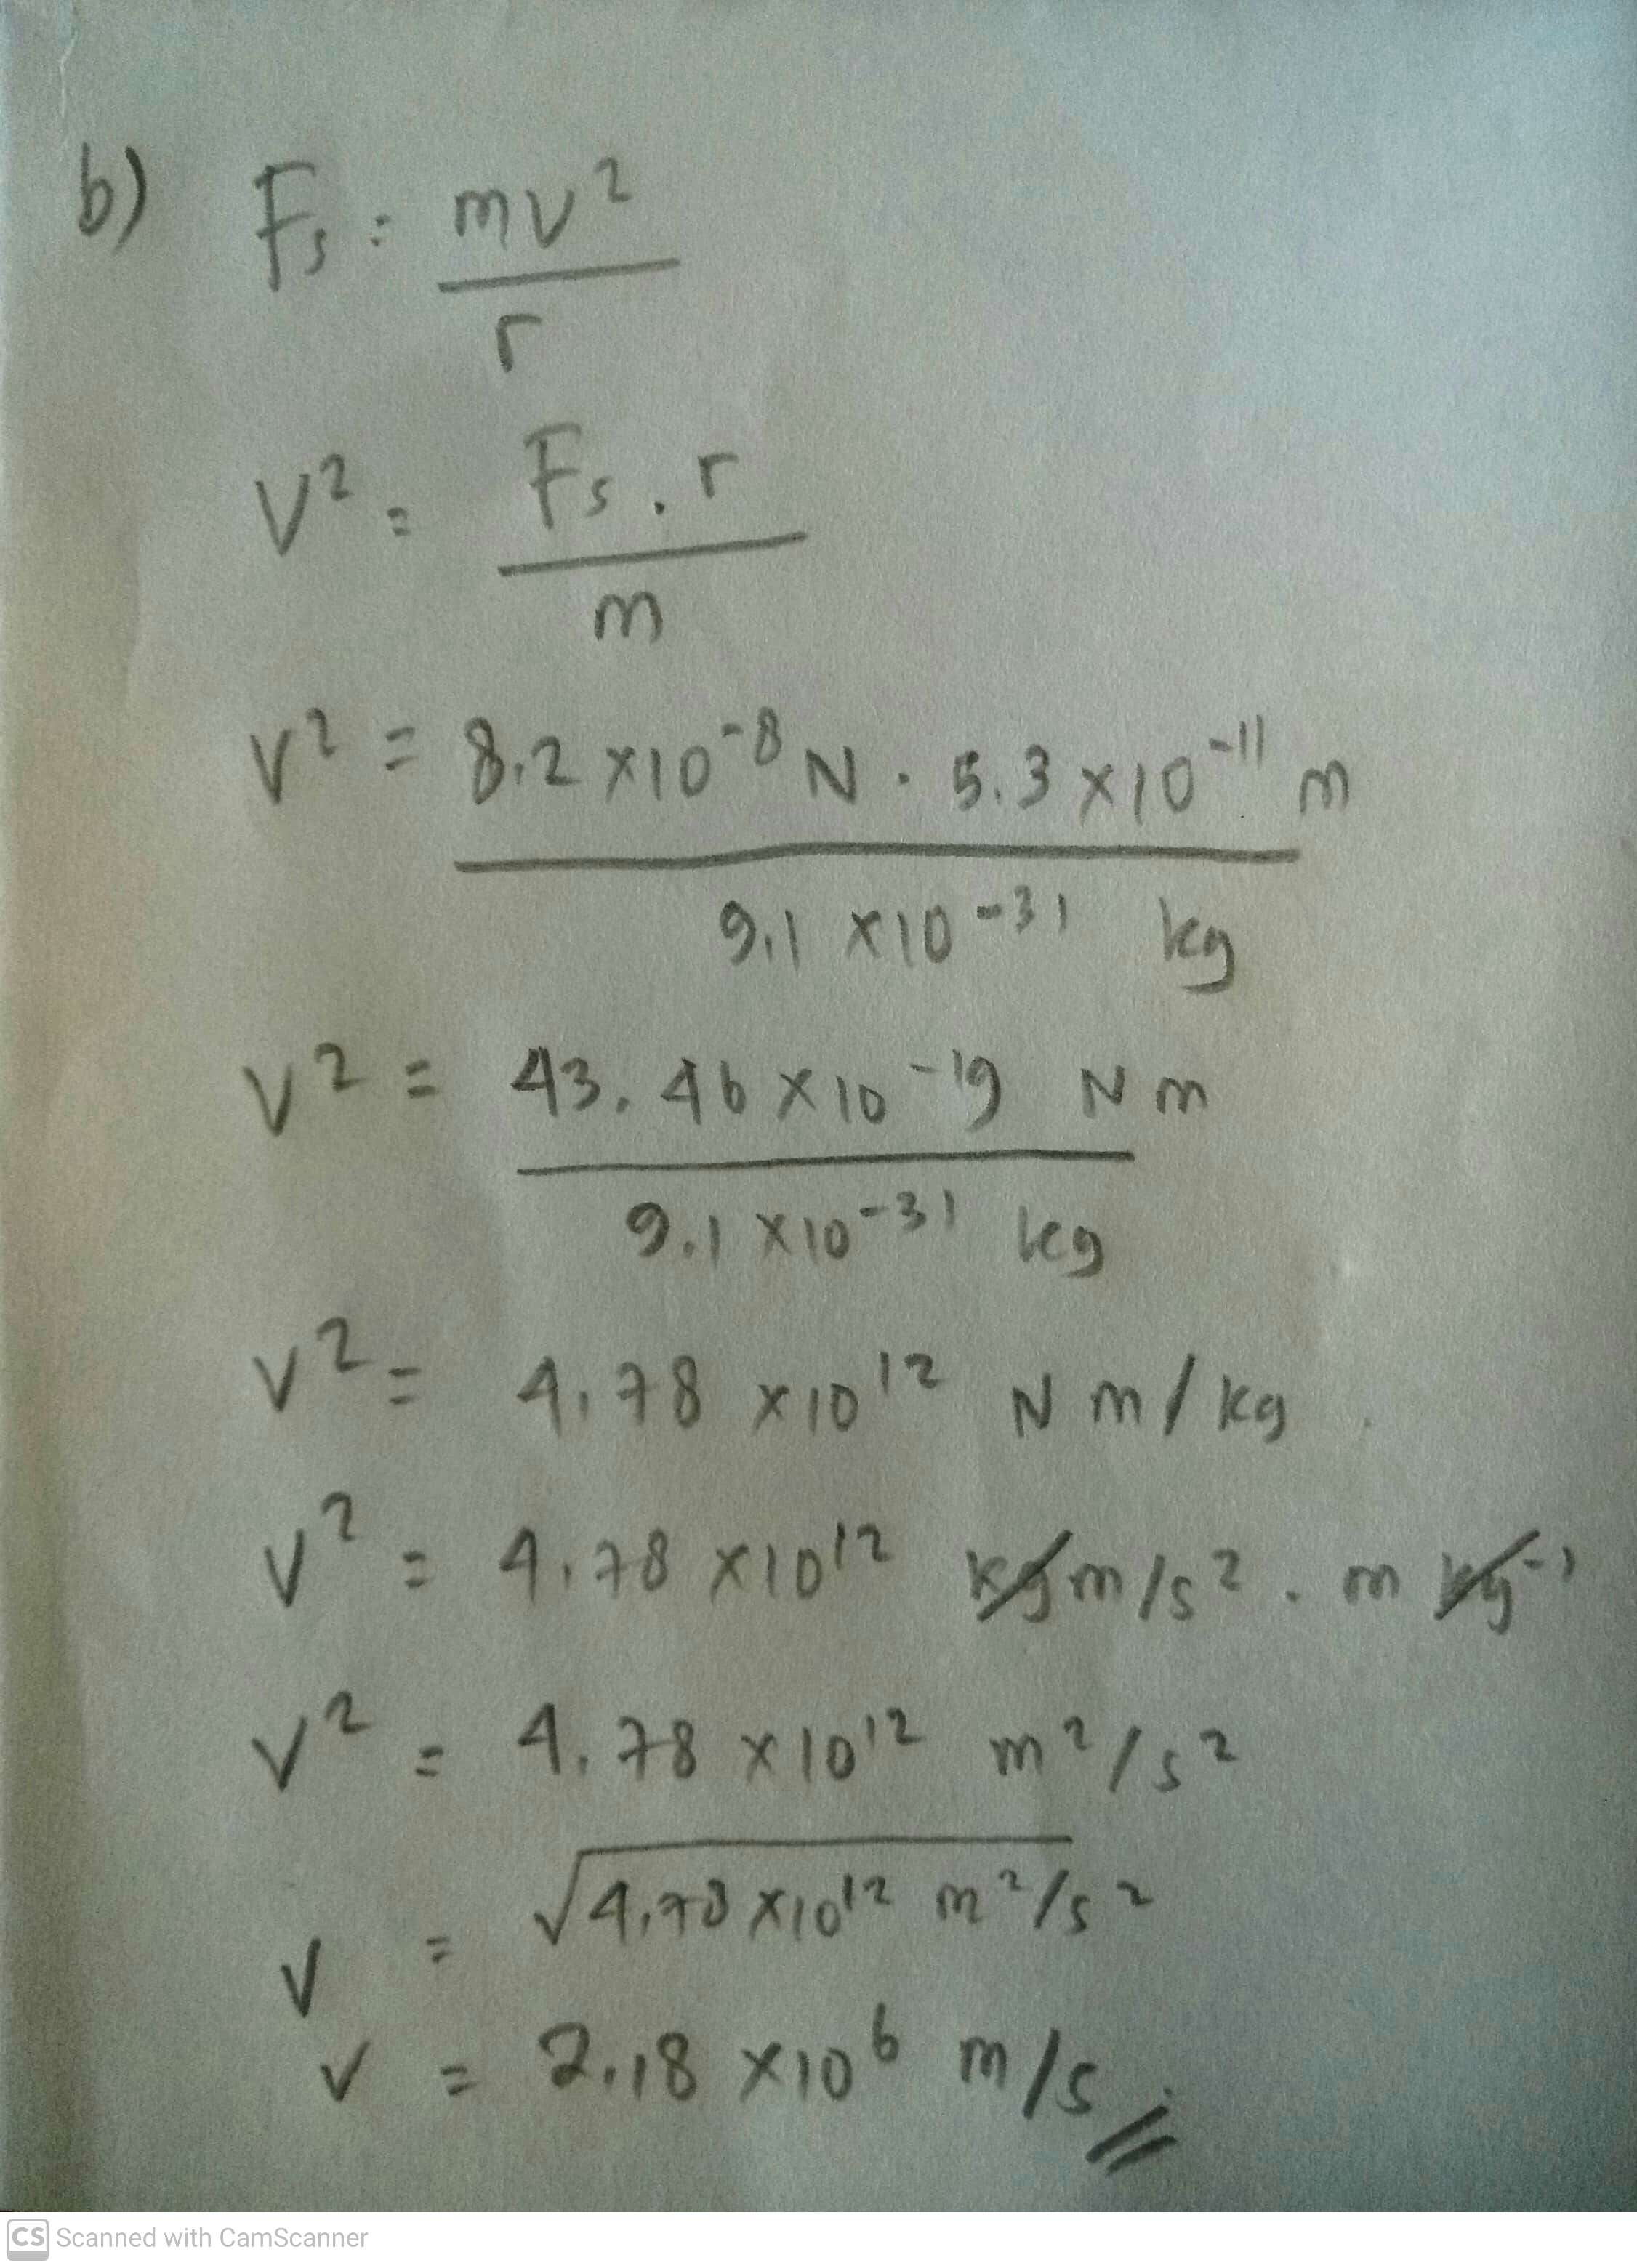 b) Fs = mv²
r
v² = Fs . r
m
v² = 8.2 x10⁻⁸ N . 5.3 x10⁻¹¹ m
9.1 x10⁻³¹ kg
v² = 43.46 x10⁻¹⁹ N m
9.1 x10⁻³¹ kg
v² = 4.78 x10¹² N m / kg
v² = 4.78 x10¹² kg m/s² . m kg⁻¹
v² = 4.78 x10¹² m²/s²
v = √4.78 x10¹² m²/s²
v = 2.18 x10⁶ m/s //
CS Scanned with CamScanner